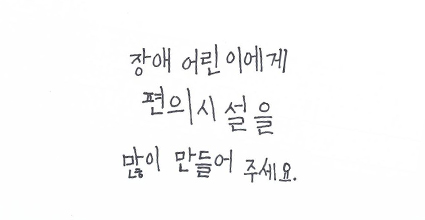 장애 어린이에게
편의시설을
많이 만들어 주세요.